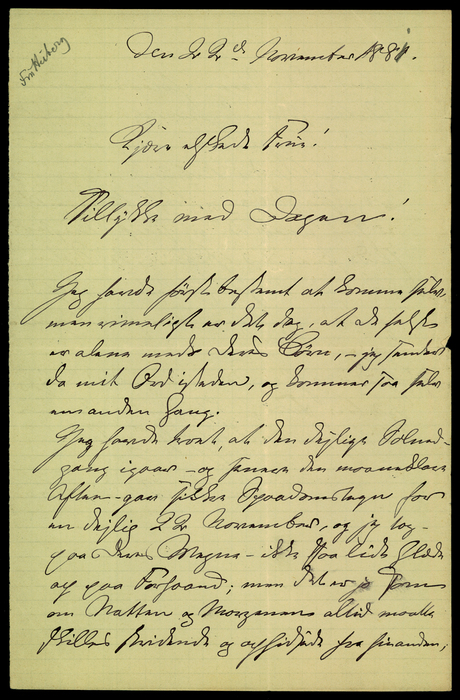 Den 22de November 1881.
Kjære elskede Frue!
Tillykke med Dagen!
Jeg havde først bestemt at komme selv,
men rimeligst er det dog, at De helst
er alene med Deres Børn, – jeg sender
da mit Ord isteden, og kommer saa selv
en anden Gang.
Jeg havde troet, at den deilige Solned-
gang igaar – og senere den maaneklare
Aften – gav sikre Spaadomstegn for
en deilig 22 November, og jeg tog –
paa Deres Vegne – ikke saa lidt Glæde
op paa Forhaand; men det er jo som
om Natten og Morgenen altid maatte
skilles stridende og ophidsede fra hinanden,